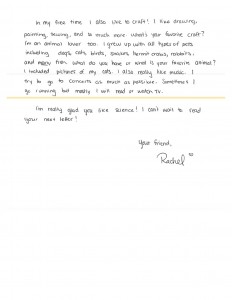 In my free time I also like to craft! I like drawing,
painting, sewing, and so much more. What's your favorite craft?
I'm an animal lover too. I grew up with all types of pets
including dogs, cats, birds, hermit crabs, rabbits,
and many from what do you have or what is your favorite animal?
I included pictures of my cats. I also really like music. I
try to go to concerts as much as possible. Sometimes I
go running but mostly I will read or watch TV.
I'm really glad you like science! I can't wait to read
your next letter!
Your friend,
Rachel